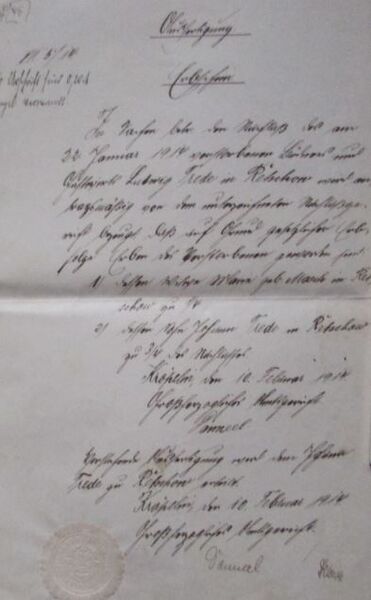 Ausfertigung
III 5/14
Erbschein
In Sachen betr. den Nachlaß des am
22 Januar 1914 verstorbenen Büdners und
Gastwirts Ludwig Trede in Retschow wird an-
tragsmäßig von dem unterzeichneten Nachlaßge-
richt bezeugt, daß auf Grund gesetzlicher Erb-
folge Erben des Verstorbenen geworden sind
1) dessen Witwe Marie geb. in Ret-
schow zu 1/4
2) dessen Sohn Johann Trede in Retschow
zu 3/4 des Nachlasses
Kröpelin, den 10. Februar 1914
Großherzogliches Amtsgericht
Vorstehende Ausfertigung wird dem Johann
Trede zu Retschow erteilt
Kröpelin, den 10. Februar 1914
Großherzogliches Amtsgericht.